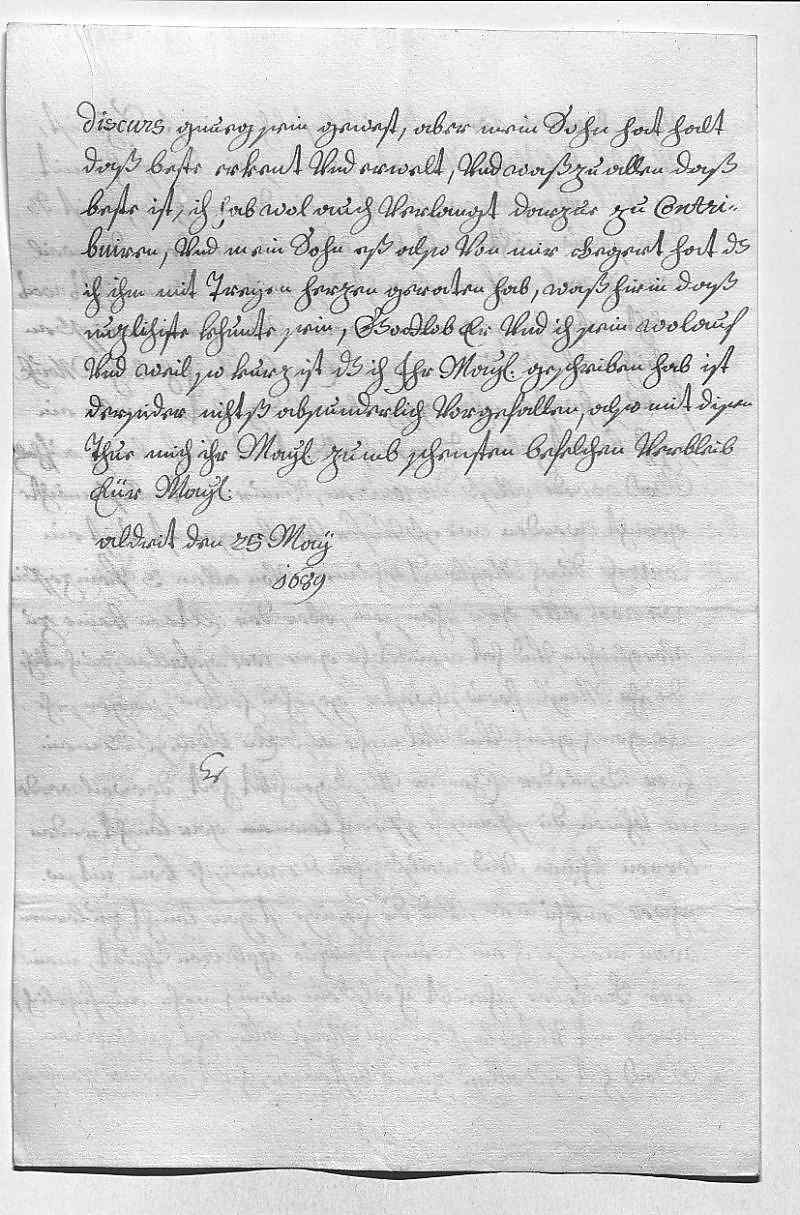 discurs genueg sein gewest, aber mein Sohn hat halt
daß beste erkent Vnd erwelt, Vnd waß zu allen daß
beste ist, ich hab wol auch Verlangt darzue zu Contri-
buiren, Vnd mein Sohn eß also Von mir begert hat ds
ich ihm mit Treyen herzen geraten hab, waß hirin daß
nuzlichiste khunte sein, Gottlob Er Vnd ich sein wolauf
Vnd weil so kurz ist ds ich Ihr Mayl: geschriben hab ist
dersider nichtß absunderlich Vorgefallen, also mit disen
Thue mich ihr Mayl: zumb schensten befelchen Verbleib
Eür Mayl:
den 25 May
1689